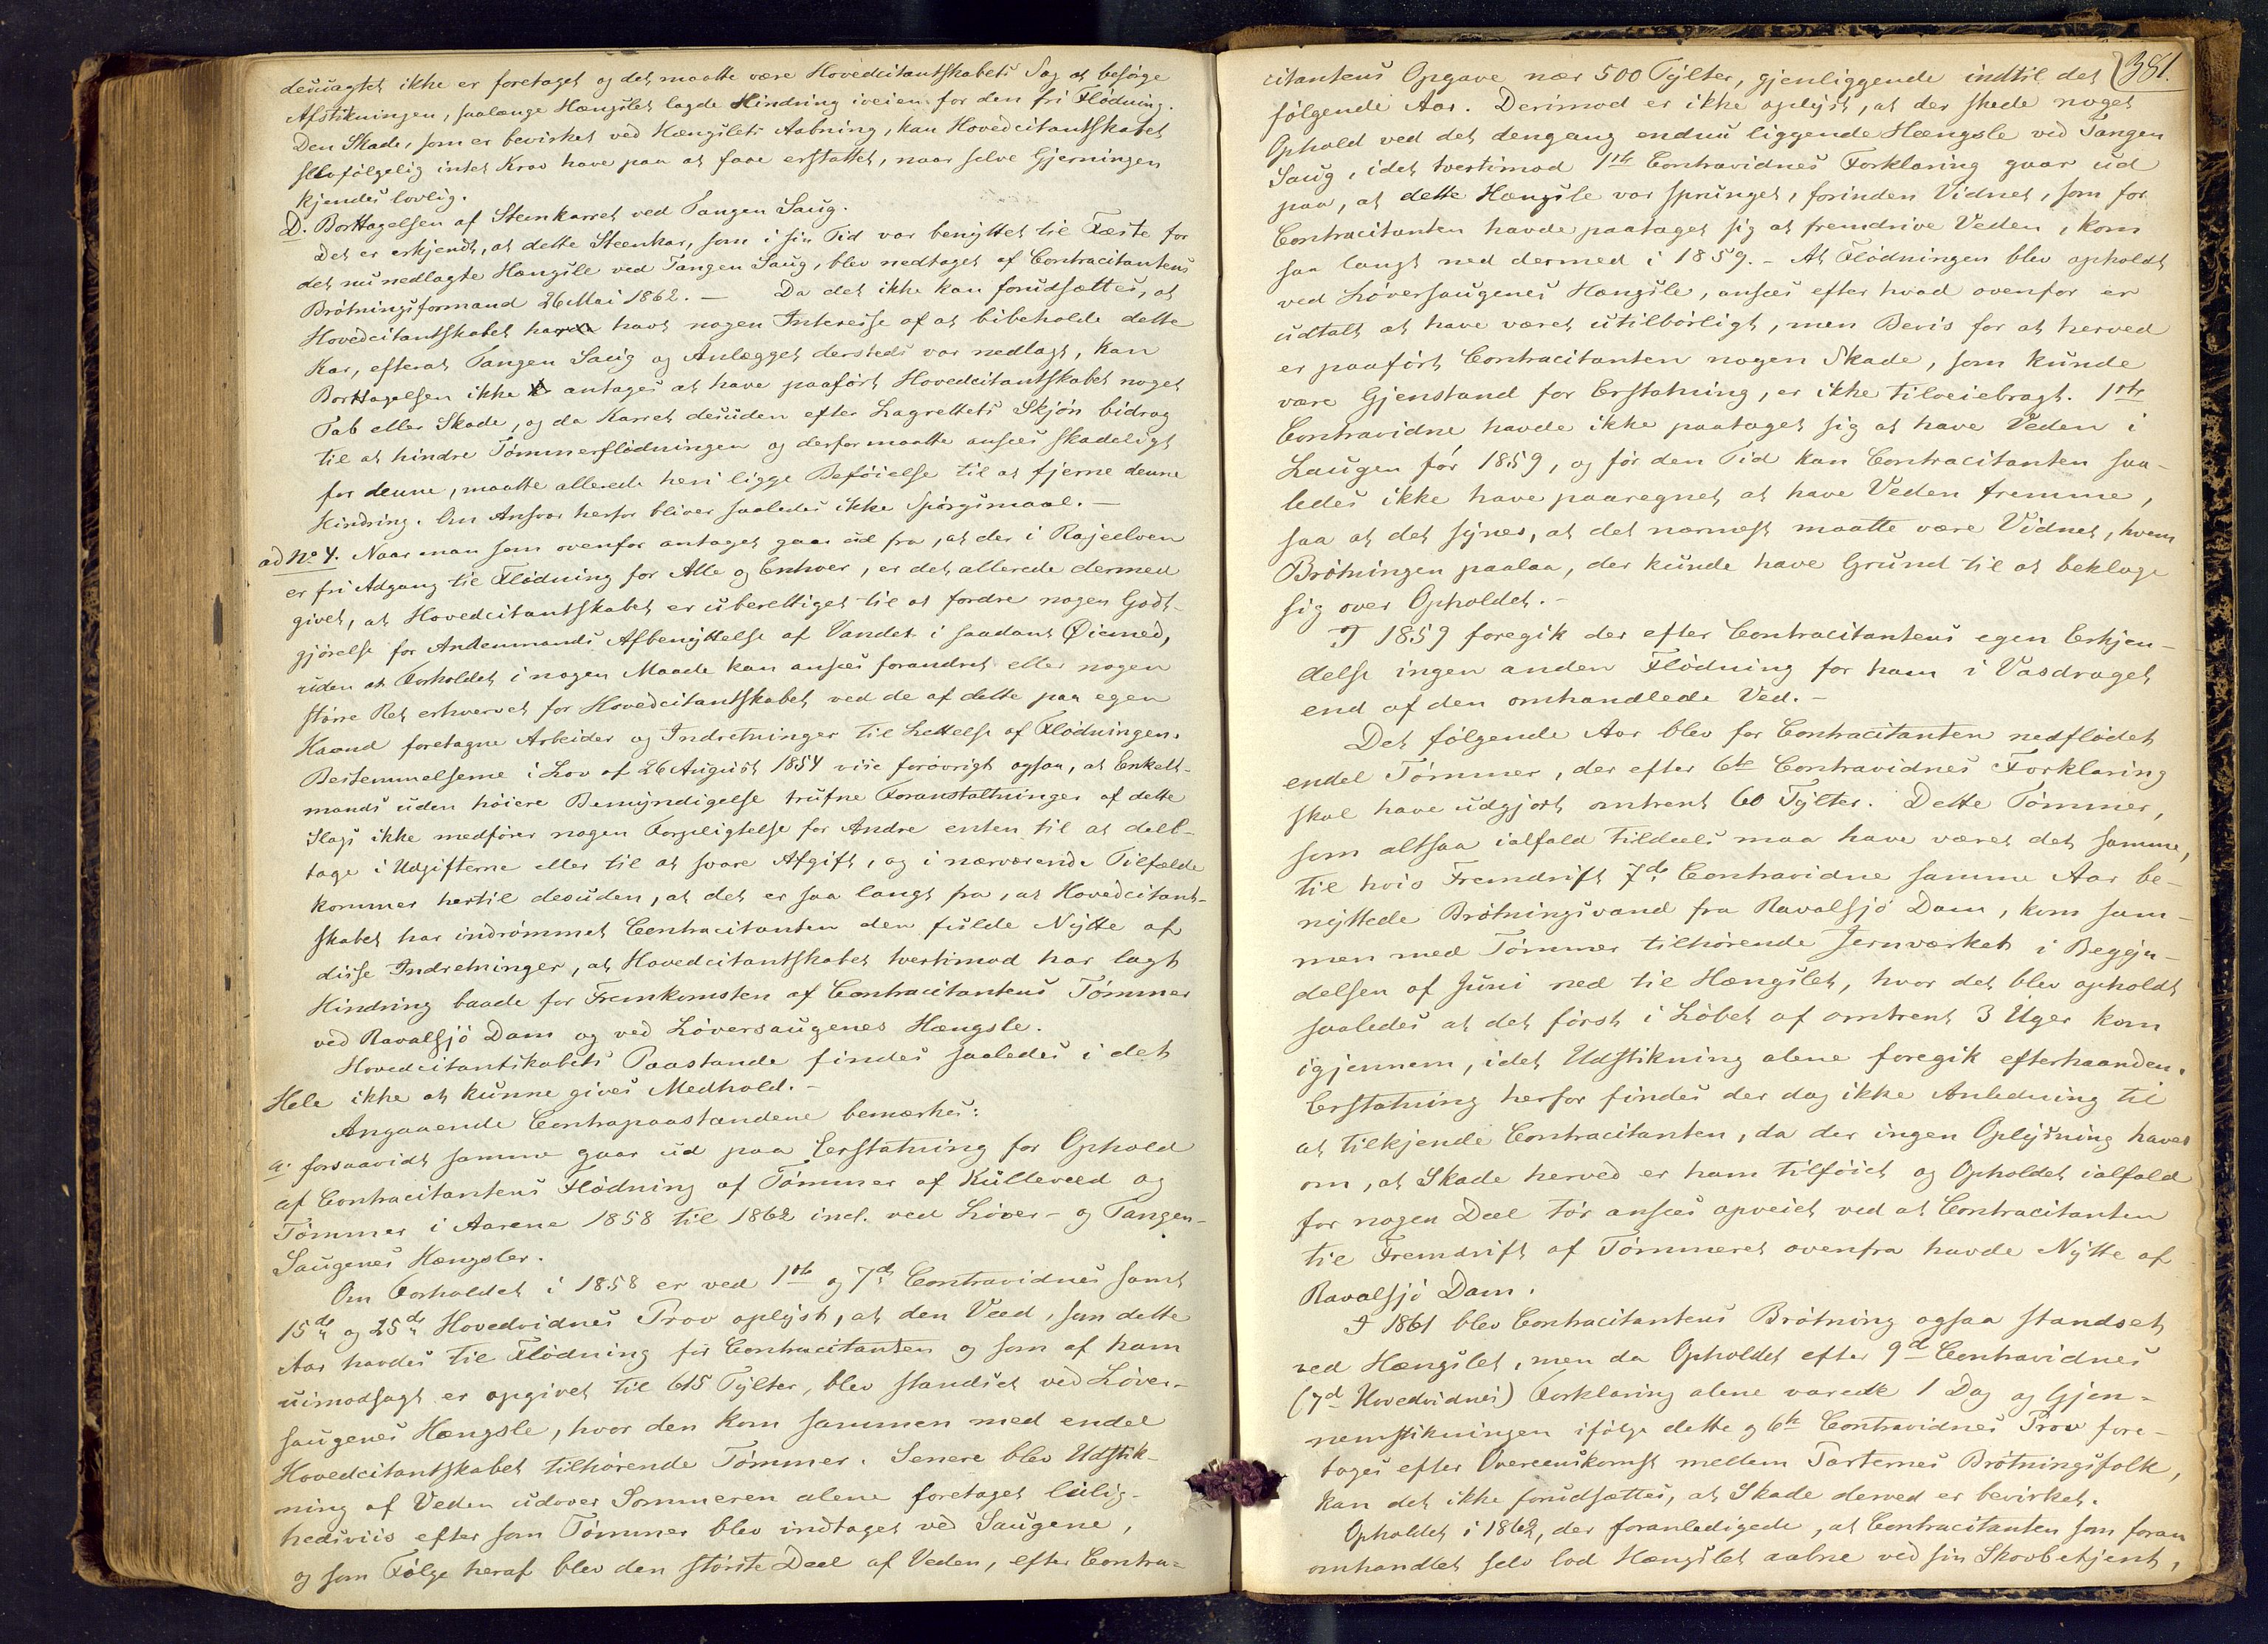 desuagtet ikke er foretaget og det maatte være Hovedcitantskabets Sag at besørge
Afstikningen, saalænge Hængslet lagde Hindring iveien for den fri Flødning.
Den Skade, som er bevirket ved Hængslets Aabning, kan Hovedcitantskabet
selvfølgelig intet Krav have paa at faae erstattet, naar selve Gjerningen
kjendes lovlig.
D. Borttagelsen af Steenkarret ved Tangen Saug.
Det er erkjendt, at dette Steenkar, som i sin Tid var benyttet til Fæste for
det nu nedlagte Hængsle ved Tangen Saug, blev nedtaget af Contracitantens
Brøtningsformand 26 Mai 1862. — Da det ikke kan forudsættes, at
Hovedcitantskabet havt nogen Interesse af at bibeholde dette
Kar, efterat Tangen Saug og Anlægget dersteds var nedlagt, kan
Borttagelsen ikke antages at have paaført Hovedcitantskabet noget
Tab eller Skade, og da Karret desuden efter Lagrettets Skjøn bidrog
til at hindre Tømmerflødningen og derfor maatte ansees skadeligt
for denne, maatte allerede heri ligge Beføielse til at fjerne denne
Hindring. Om Ansvar herfor bliver saaledes ikke Spørgsmaal. —
ad No 4. Naar man som ovenfor antaget gaar ud fra, at der i Rajeelven
er fri Adgang til Flødning for Alle og Enhver, er det allerede dermed
givet, at Hovedcitantskabet er uberettiget til at fordre nogen Godt-
gjørelse for Andenmands Afbenyttelse af Vandet i saadant Øiemed,
uden at Forholdet i nogen Maade kan ansees forandret eller nogen
større Ret erhvervet for Hovedcitantskabet ved de af dette paa egen
Haand foretagne Arbeider og Indretninger til Lettelse af Flødningen.
Bestemmelserne i Lov af 26 August 1854 vise forøvrigt ogsaa, at Enkelt-
mands uden høiere Bemyndigelse trufne Foranstaltninger af dette
Slags ikke medfører nogen Forpligtelse for Andre enten til at delt-
tage i Udgifterne eller til at svare Afgift, og i nærværende Tilfælde
kommer hertil desuden, at det er saa langt fra, at Hovedcitant-
skabet har indrømmet Contracitanten den fulde Nytte af
disse Indretninger, at Hovedcitantskabet tvertimod har lagt
Hindring baade for Fremkomsten af Contracitantens Tømmer
ved Ravalsjø Dam og ved Løversaugenes Hængsle.
Hovedcitantskabets Paastande findes saaledes i det
Hele ikke at kunne gives Medhold. —
Angaaende Contrapaastandene bemærkes:
a. forsaavidt samme gaar ud paa Erstatning for Ophold
af Contracitantens Flødning af Tømmer af Kulleveed og
Tømmer i Aarene 1858 til 1862 incl. ved Løver- og Tangen-
Saugenes Hængsler.
Om Forholdet i 1858 er ved 1ste og 7de Contravidnes samt
15de og 25de Hovedvidnes Prov oplyst, at den Veed, som dette
Aar havdes til Flødning for Contracitanten og som af ham
uimodsagt er opgivet til 615 Tylter, blev standset ved Løver-
saugenes Hængsle, hvor den kom sammen med endel
Hovedcitantskabet tilhørende Tømmer. Senere blev Udstik-
ning af Veden udover Sommeren alene foretaget leilig-
hedsviis efter som Tømmer blev indtaget ved Saugene,
og som Følge heraf blev den største Deel af Veden, efter Contra-
381.
citantens Opgave nær 500 Tylter, gjenliggende indtil det
følgende Aar. Derimod er ikke oplyst, at der skede noget
Ophold ved det dengang endnu liggende Hængsle ved Tangen
Saug, idet tvertimod 1ste Contravidnes Forklaring gaar ud
paa, at dette Hængsle var sprunget, forinden Vidnet, som for
Contracitanten havde paataget sig at fremdrive Veden, kom
saa langt ned dermed i 1859. — At Flødningen blev opholdt
ved Løversaugenes Hængsle, ansees efter hvad ovenfor er
udtalt at have været utilbørligt, men Bevis for at herved
er paaført Contracitanten nogen Skade, som kunde
være Gjenstand for Erstatning, er ikke tilveiebragt. 1ste
Contravidne havde ikke paataget sig at have Veden i
Laugen før 1859, og før den Tid kan Contracitanten saa-
ledes ikke have paaregnet at have Veden fremme,
saa at det synes, at det nærmest maatte være Vidnet, hvem
Brøtningen paalaa, der kunde have Grund til at beklage
sig over Opholdet. —
I 1859 foregik der efter Contracitantens egen Erkjen-
delse ingen anden Flødning for ham i Vasdraget
end af den omhandlede Ved. —
Det følgende Aar blev for Contracitanten nedflødet
endel Tømmer, der efter 6te Contravidnes Forklaring
skal have udgjort omtrent 60 Tylter. Dette Tømmer,
som altsaa ialfald tildeels maa have været det samme,
til hvis Fremdrift 7de Contravidne samme Aar be-
nyttede Brøtningsvand fra Ravalsjø Dam, kom sam-
men med Tømmer tilhørende Jernværket i Begyn-
delsen af Juni ned til Hængslet, hvor det blev opholdt
saaledes at det først i Løbet af omtrent 3 Uger kom
igjennem, idet Udstikning alene foregik efterhaanden.
Erstatning herfor findes der dog ikke Anledning til
at tilkjende Contracitanten, da der ingen Oplysning haves
om, at Skade herved er ham tilføiet og Opholdet ialfald
for nogen Deel tør ansees opveiet ved at Contracitanten
til Fremdrift af Tømmeret ovenfra havde Nytte af
Ravalsjø Dam.
I 1861 blev Contracitantens Brøtning ogsaa standset
ved Hængslet, men da Opholdet efter 9de Contravidnes
(7de Hovedvidnes) Forklaring alene varede 1 Dag og Gjen-
nemstikningen ifølge dette og 6te Contravidnes Prov fore-
toges efter Overeenskomst mellem Parternes Brøtningsfolk,
kan det ikke forudsættes, at Skade derved er bevirket.
Opholdet i 1862, der foranledigede, at Contracitanten som foran
omhandlet selv lod Hængslet aabne ved sin Skovbetjent,